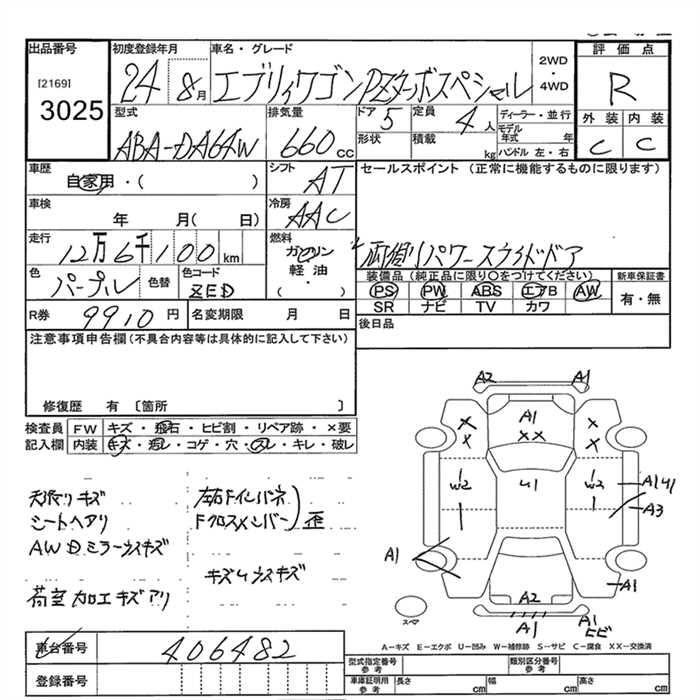 出品番号
[2169]
3025
初度登録年月
24 8月
車名・グレード
エブリィワゴンPZターボスペシャル
2WD
・
4WD
評価点
R
外装 内装
C C
型式
ABA-DA64W
排気量
660cc
ドア 5
定員 4人
ディーラー・並行
形状
積載 kg
モデル年式 年
ハンドル 左・右
車歴
自家用・( )
シフト
AT
セールスポイント (正常に機能するものに限ります)
車検
年 月( 日)
冷房
AAC
走行
12万6千100km
燃料
ガソリン
軽油
・( )
両側リパワースライドドア
色
パープル
色替
色コード
ZED
装備品(純品に限り〇をつけてください)
PS PW ABS エアB AW
SR ナビ TV カワ
新車保証書
有・無
R券 9910円
名変期限 月 日
後日品
注意事項申告欄(不具合内容等は具体的に記入して下さい)
修復歴 有 〔箇所 〕
検査員 FW キズ・飛石・ヒビ割・リペア跡・×要
記入欄 内装 キズ・汚レ・コゲ・穴・スレ・キレ・破レ
天張リキズ
シートヘアリ
AWDミラーウスキズ
荷室加工キズアリ
左右Fインパネ
Fクロスメンバー 歪
キズムウスキズ
A2 A1
A1
XX
X X
X X
W2 U1 W2
A1 U1
A3
A1
A1
A2
A1
A1
ヒビ
スペア
A-キズ E-エクボ U-凹み W-補修跡 S-サビ C-腐食 XX-交換済
車台番号 406482
登録番号
型式指定番号
参考
類別区分番号
参考
車庫証明用
参考
長さ cm 幅 cm 高さ cm